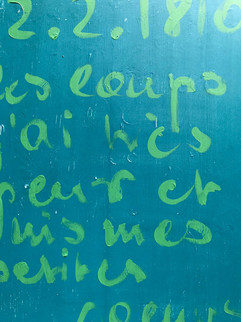 2.2.1810
les loups
j'ai très
peur et
puis mes
petites